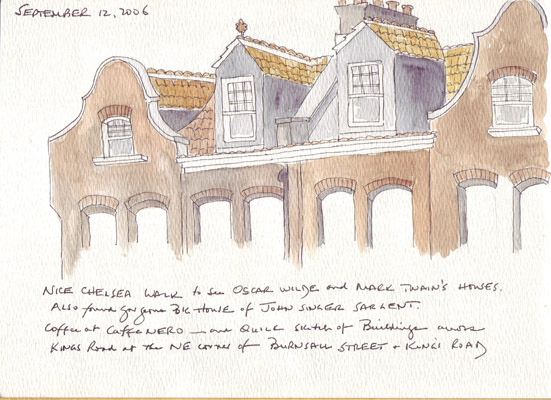 SEPTEMBER 12, 2006
NICE CHELSEA WALK to see OSCAR WILDE and MARK TWAIN'S HOUSES.
ALSO found gorgeous BIG HOUSE of JOHN SINGER SARGENT.
Coffee at Caffe NERO — and QUICK sketch of Buildings across
KINGS ROAD at the NE corner of BURNSALL STREET + KING'S ROAD